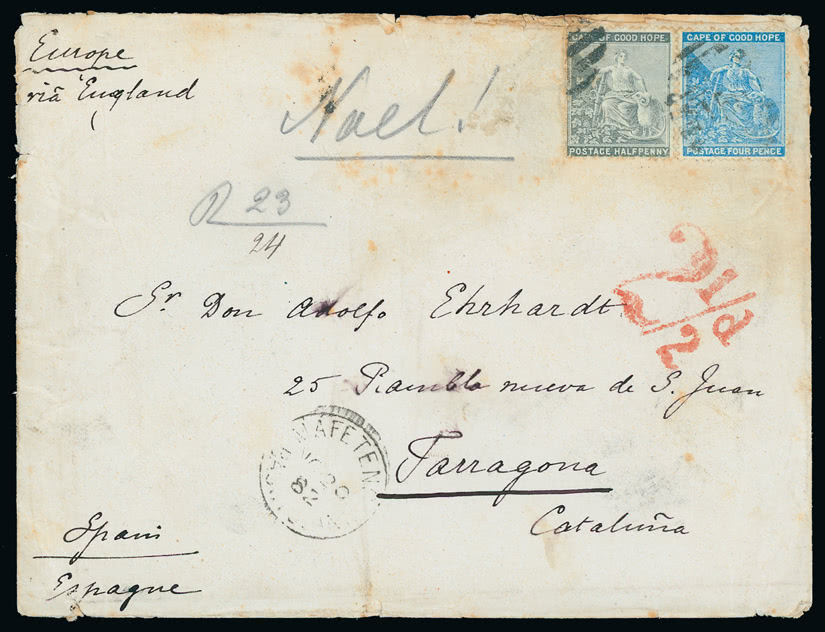 Europe
viâ England
Noel!
CAPE OF GOOD HOPE
POSTAGE HALFPENNY
CAPE OF GOOD HOPE
POSTAGE FOUR PENCE
R 23
24
2 1/2 d
Sr. Don Adolfo Ehrhardt
25 Rambla nueva de S. Juan
Tarragona
Cataluña
MAFETENG
82
Spain
Espagne